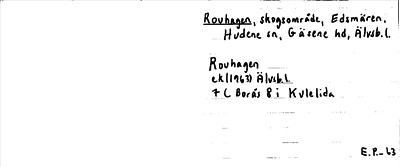 Rouhagen, skogsområde, Edsmären,
Hudene sn, Gäsene hd, Älvsb.l.
Rouhagen
ek(1963) Älvsb.l.
7 C Borås 8 i Kvlelida
E.P. -63